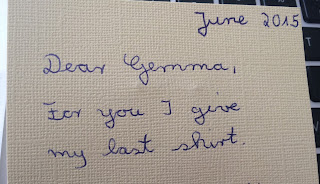 June 2015
Dear Gemma,
For you I give
my last shirt.